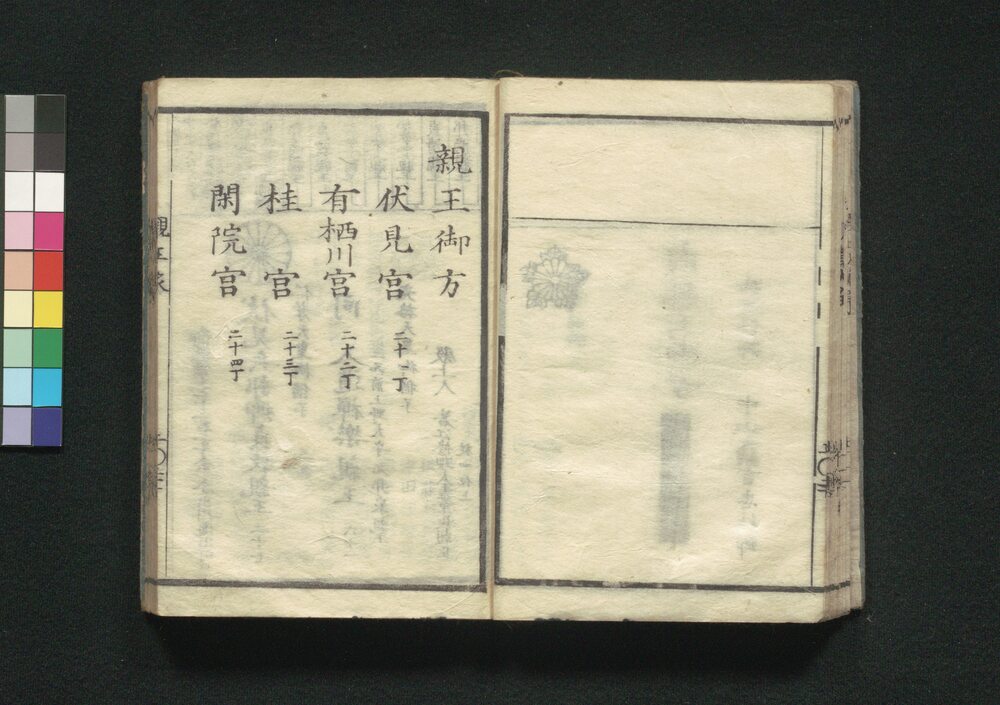 親王御方
伏見宮 二十一丁
有栖川宮 二十二丁
桂宮 二十三丁
閑院宮 二十四丁